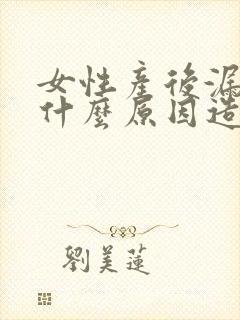 女性產後漏
什麼原因造
劉美蓮